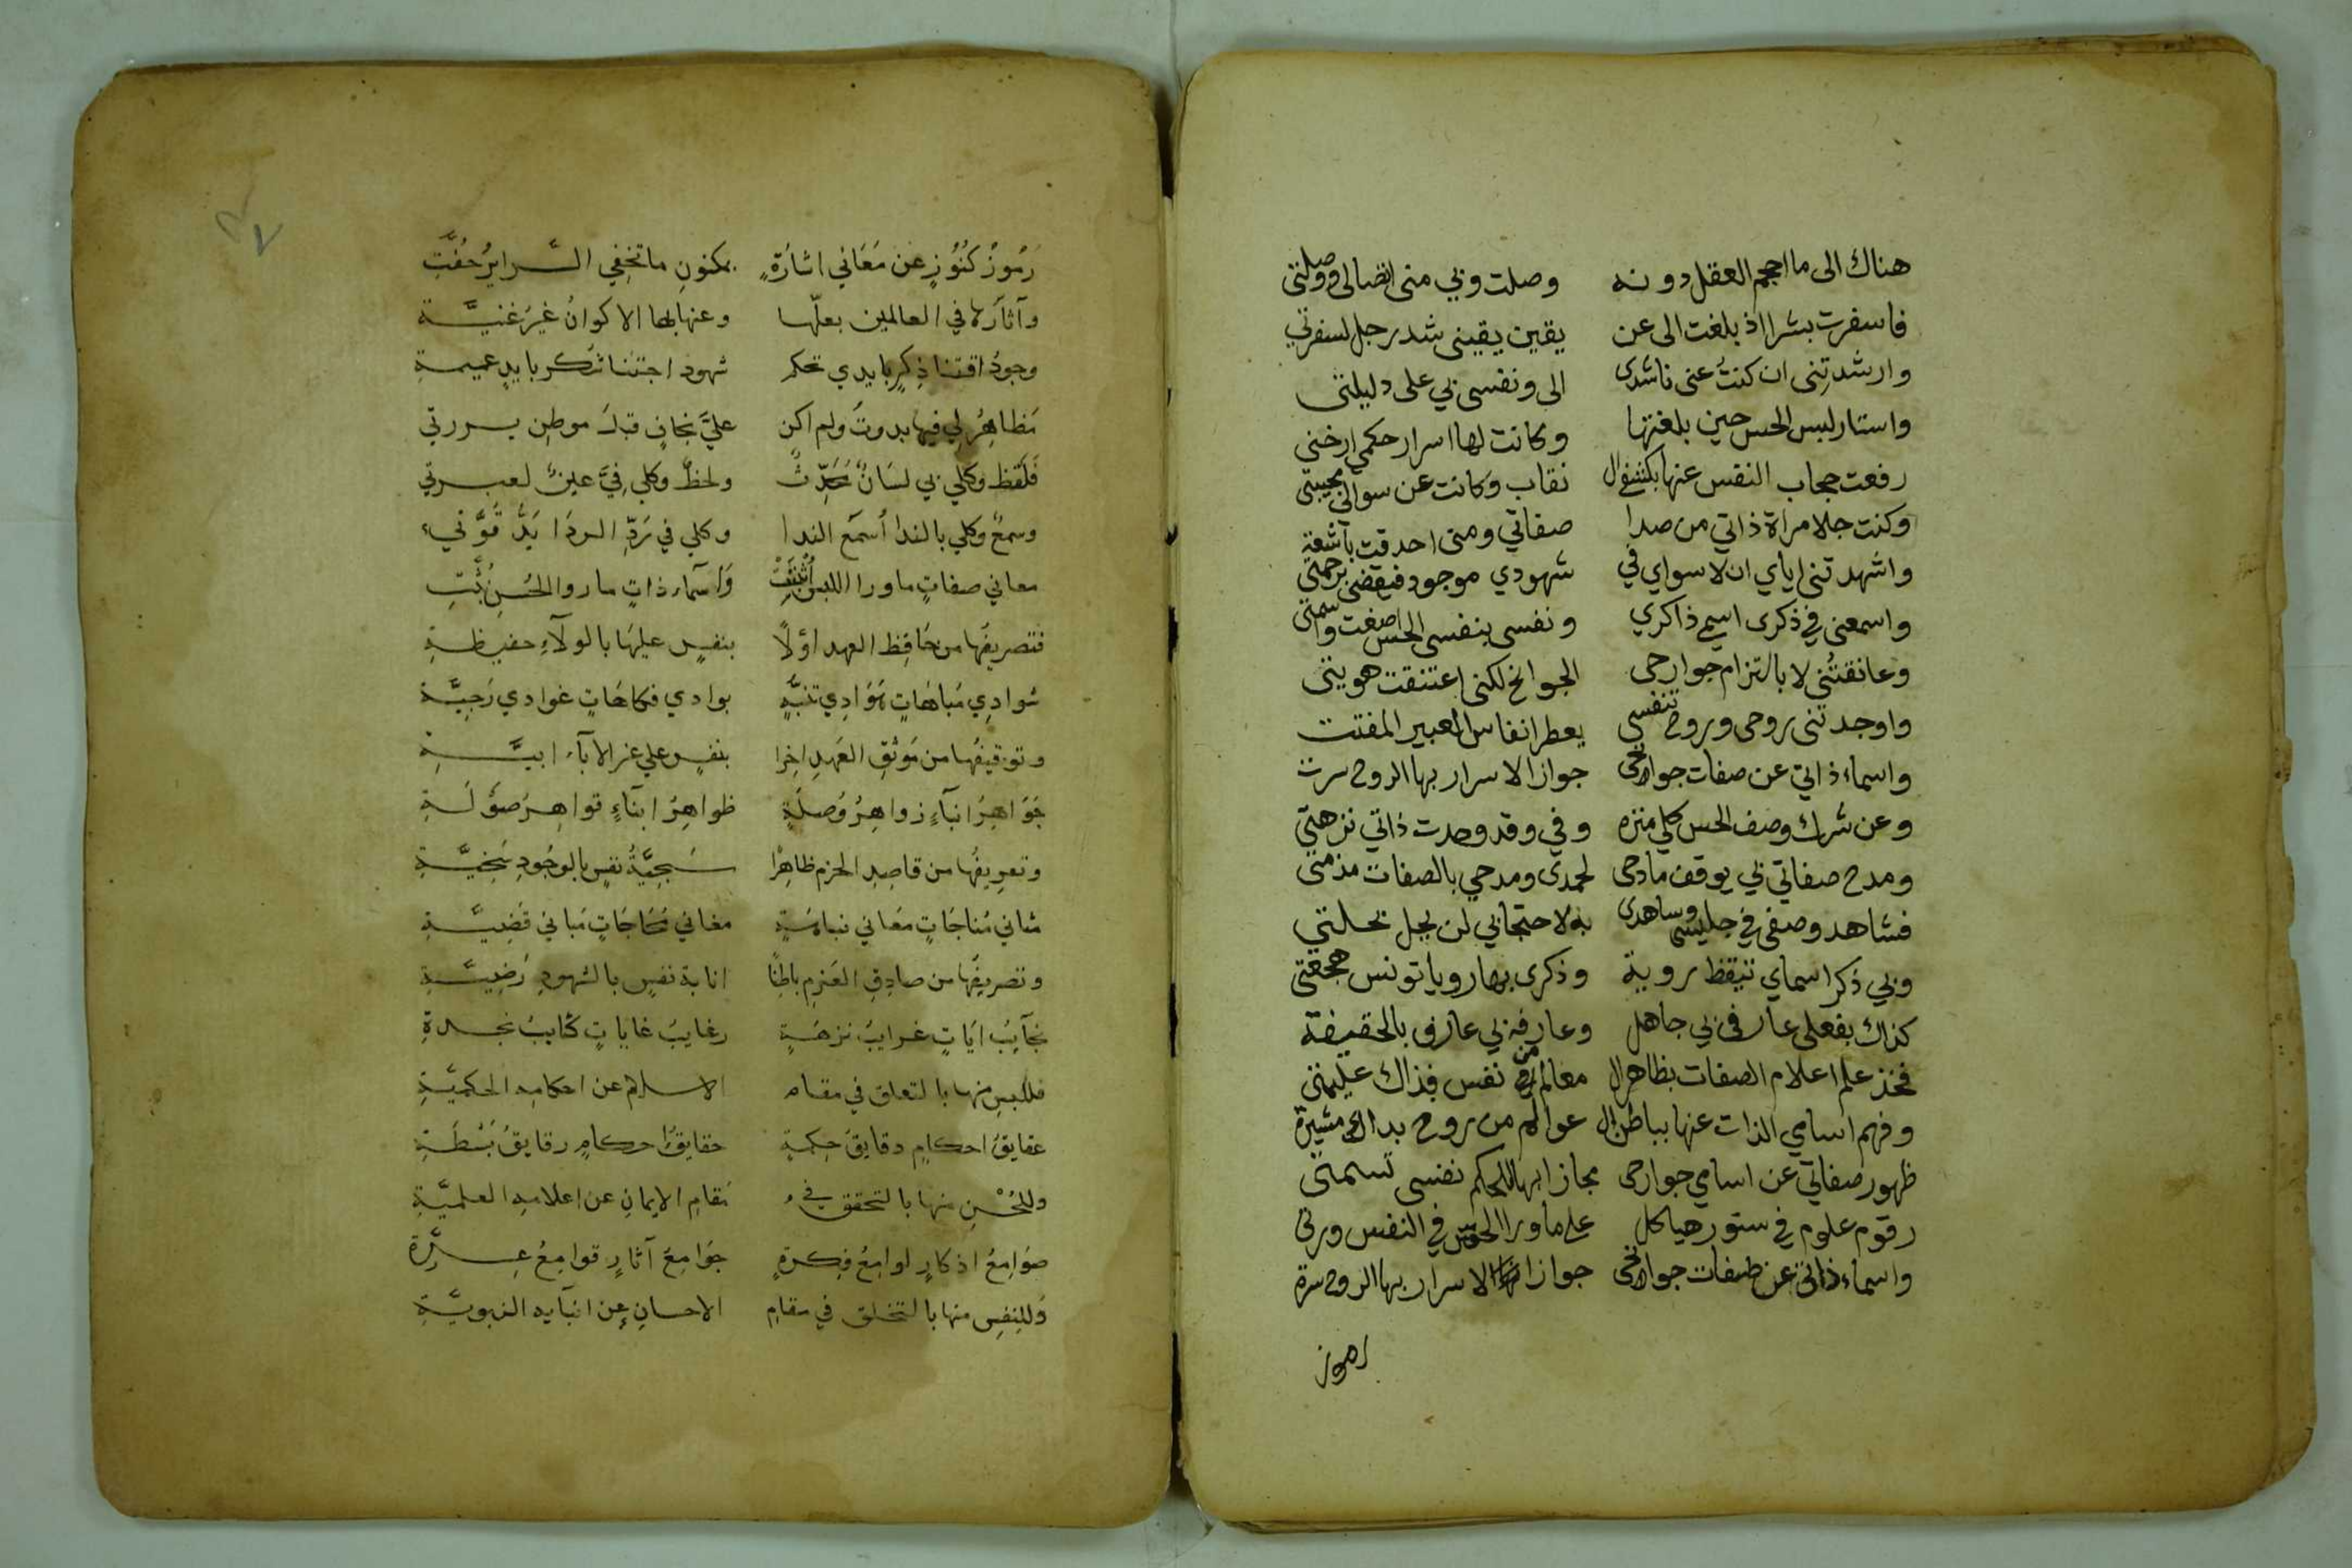 هناك الى ما احجم العقل دونه وصلت وبي منى اتصالى ووصلتى
فاسفرت بشرا اذ بلغت الى عن يقين يقينى شد رحل لسفرتي
وارشدتنى ان كنت عنى ناشدى الى ونفسى بي على دليلتى
واستار لبس الحس حين بلغتها وكانت لها اسرار حكمى ارخى
رفعت حجاب النفس عنها بكشفى ال نقاب وكانت عن سوالى مجيبتى
وكنت جلا مراة ذاتي من صدا صفاتي ومنى احدقت باشعة
واشهدتنى اياي ان لا سواي في شهودي موجود فيقضى بزحمتى
واسمعنى في ذكرى اسمى ذاكري ونفسى بنفسى الحس اصغت واسمتى
وعانقتنى لا بالتزام جوارحى الجوانح لكنى اعتنقت هويتى
واوجدتنى روحى وروح تنفسى يعطر انفاس العبير المفتت
واسماء ذاتي عن صفات جوانحى جوازا الاسرار بها الروح سرت
وعن شرك وصف الحس كلي منزه وفي وقد وحدت ذاتي نزهتي
ومدح صفاتي بي يوقف مادحى لحمدى ومدحي بالصفات مذمتى
فشاهد وصفى في جليسى وشاهدى به لاحتجابي لن يحل بحلتي
وبي ذكر اسماي تيقظ روية وذكرى بها رويا تونس هجعتى
كذاك بفعلى عارفى بي جاهل وعارفه بي عارف بالحقيقة
فخذ علم اعلام الصفات بظاهر ال معالم من نفس بذاك عليمتى
وفهم اسامي الذات عنها بباطن ال عوالم من روح بذاك مشيرة
ظهور صفاتي عن اسامي جوارحى مجازا بها للحكم نفسى تسمتى
رقوم علوم في ستور هياكل على ما ورا الحس في النفس ورت
واسماء ذاتي عن صفات جوانحى جوازا الاسرار بها الروح سرة
رموز
رُموزُ كُنُوزٍ عن مَعَاني اشارَةٍ بمكنونِ ما تخفي السَّرايرُ حُفَّتِ
وآثارُه في العالمين بعلّها وعنها بها الاكوانُ غيرُ غنيَّة
وجودُ اقتنا ذِكرٍ بايدي تحكم شهود اجتنا شكر بايدٍ عميمةِ
مَظاهِرُ لي فيها بدوتُ ولم اكن عليَّ بخافٍ قبلَ موطِن برزتي
فَلَفظ وكلي بي لسَانٌ مُحَدِّثٌ ولحظٌ وكلي فيَّ عينٌ لعبرتي
وسمعٌ وكلي بالندا اُسمَع الندا وكلي في رَدِّ الردَا يَدُ قُوَّتي
معاني صفاتٍ ماورا اللبس اُثبتَتْ وَاسمآء ذاتٍ ما روا الحُسنُ بُثَّتِ
فتصريفُها من حَافِظ العهد اوّلًا بنفسٍ عليهَا بالولآءِ حفيظةِ
شوادِي مُباهَاتٍ هَوَادِي تنبُّهٍ بوادي فكاهَاتٍ غوادي رَجِيَّة
وتوقيفُها من مَوثقِ العَهدِ اخِرا بنفسٍ علي عز الابآء ابيَّةِ
جَوَاهِرُ انبآءٍ زواهِرُ وُصلَةٍ ظواهِرُ ابنآءٍ قواهِرُ صوْلَةِ
وتعرِيفُها من قاصِدِ الحزم ظاهِرًا سَجِيَّةُ نفسٍ بالوجُودِ سَخيَّةِ
مثاني مُناجَاتٍ معَاني نباهَةٍ مغاني مُحَاجَاتٍ مَباني قَضِيَّةِ
وتصريفُها من صادِقِ العَزمِ باطِنًا انابة نفسٍ بالشهودِ رَضِيَّةِ
نجآيبُ ايَاتٍ غرايبُ نزهَةٍ رغايبُ غاياتٍ كتايبُ نجدةِ
فللبسِ منها بالتعلق في مقام الاسلام عن احكامِه الحكميَّةِ
عقايقُ احكامٍ دقايقُ حِكمةٍ حقايقُ احكامٍ رقايقُ بَسْطَةِ
وللحُسْنِ منها بالتحقق في مَقامِ الايمانِ عن اعلامهِ العلميَّةِ
صوَامِعُ اذكارٍ لوامِعُ فِكرةٍ جَوَامِعُ آثارٍ قوامِعُ عِزَّةِ
وَللنفسِ منها بالتخلق في مقامِ الاحسانِ عن انبآيه النبويَّةِ